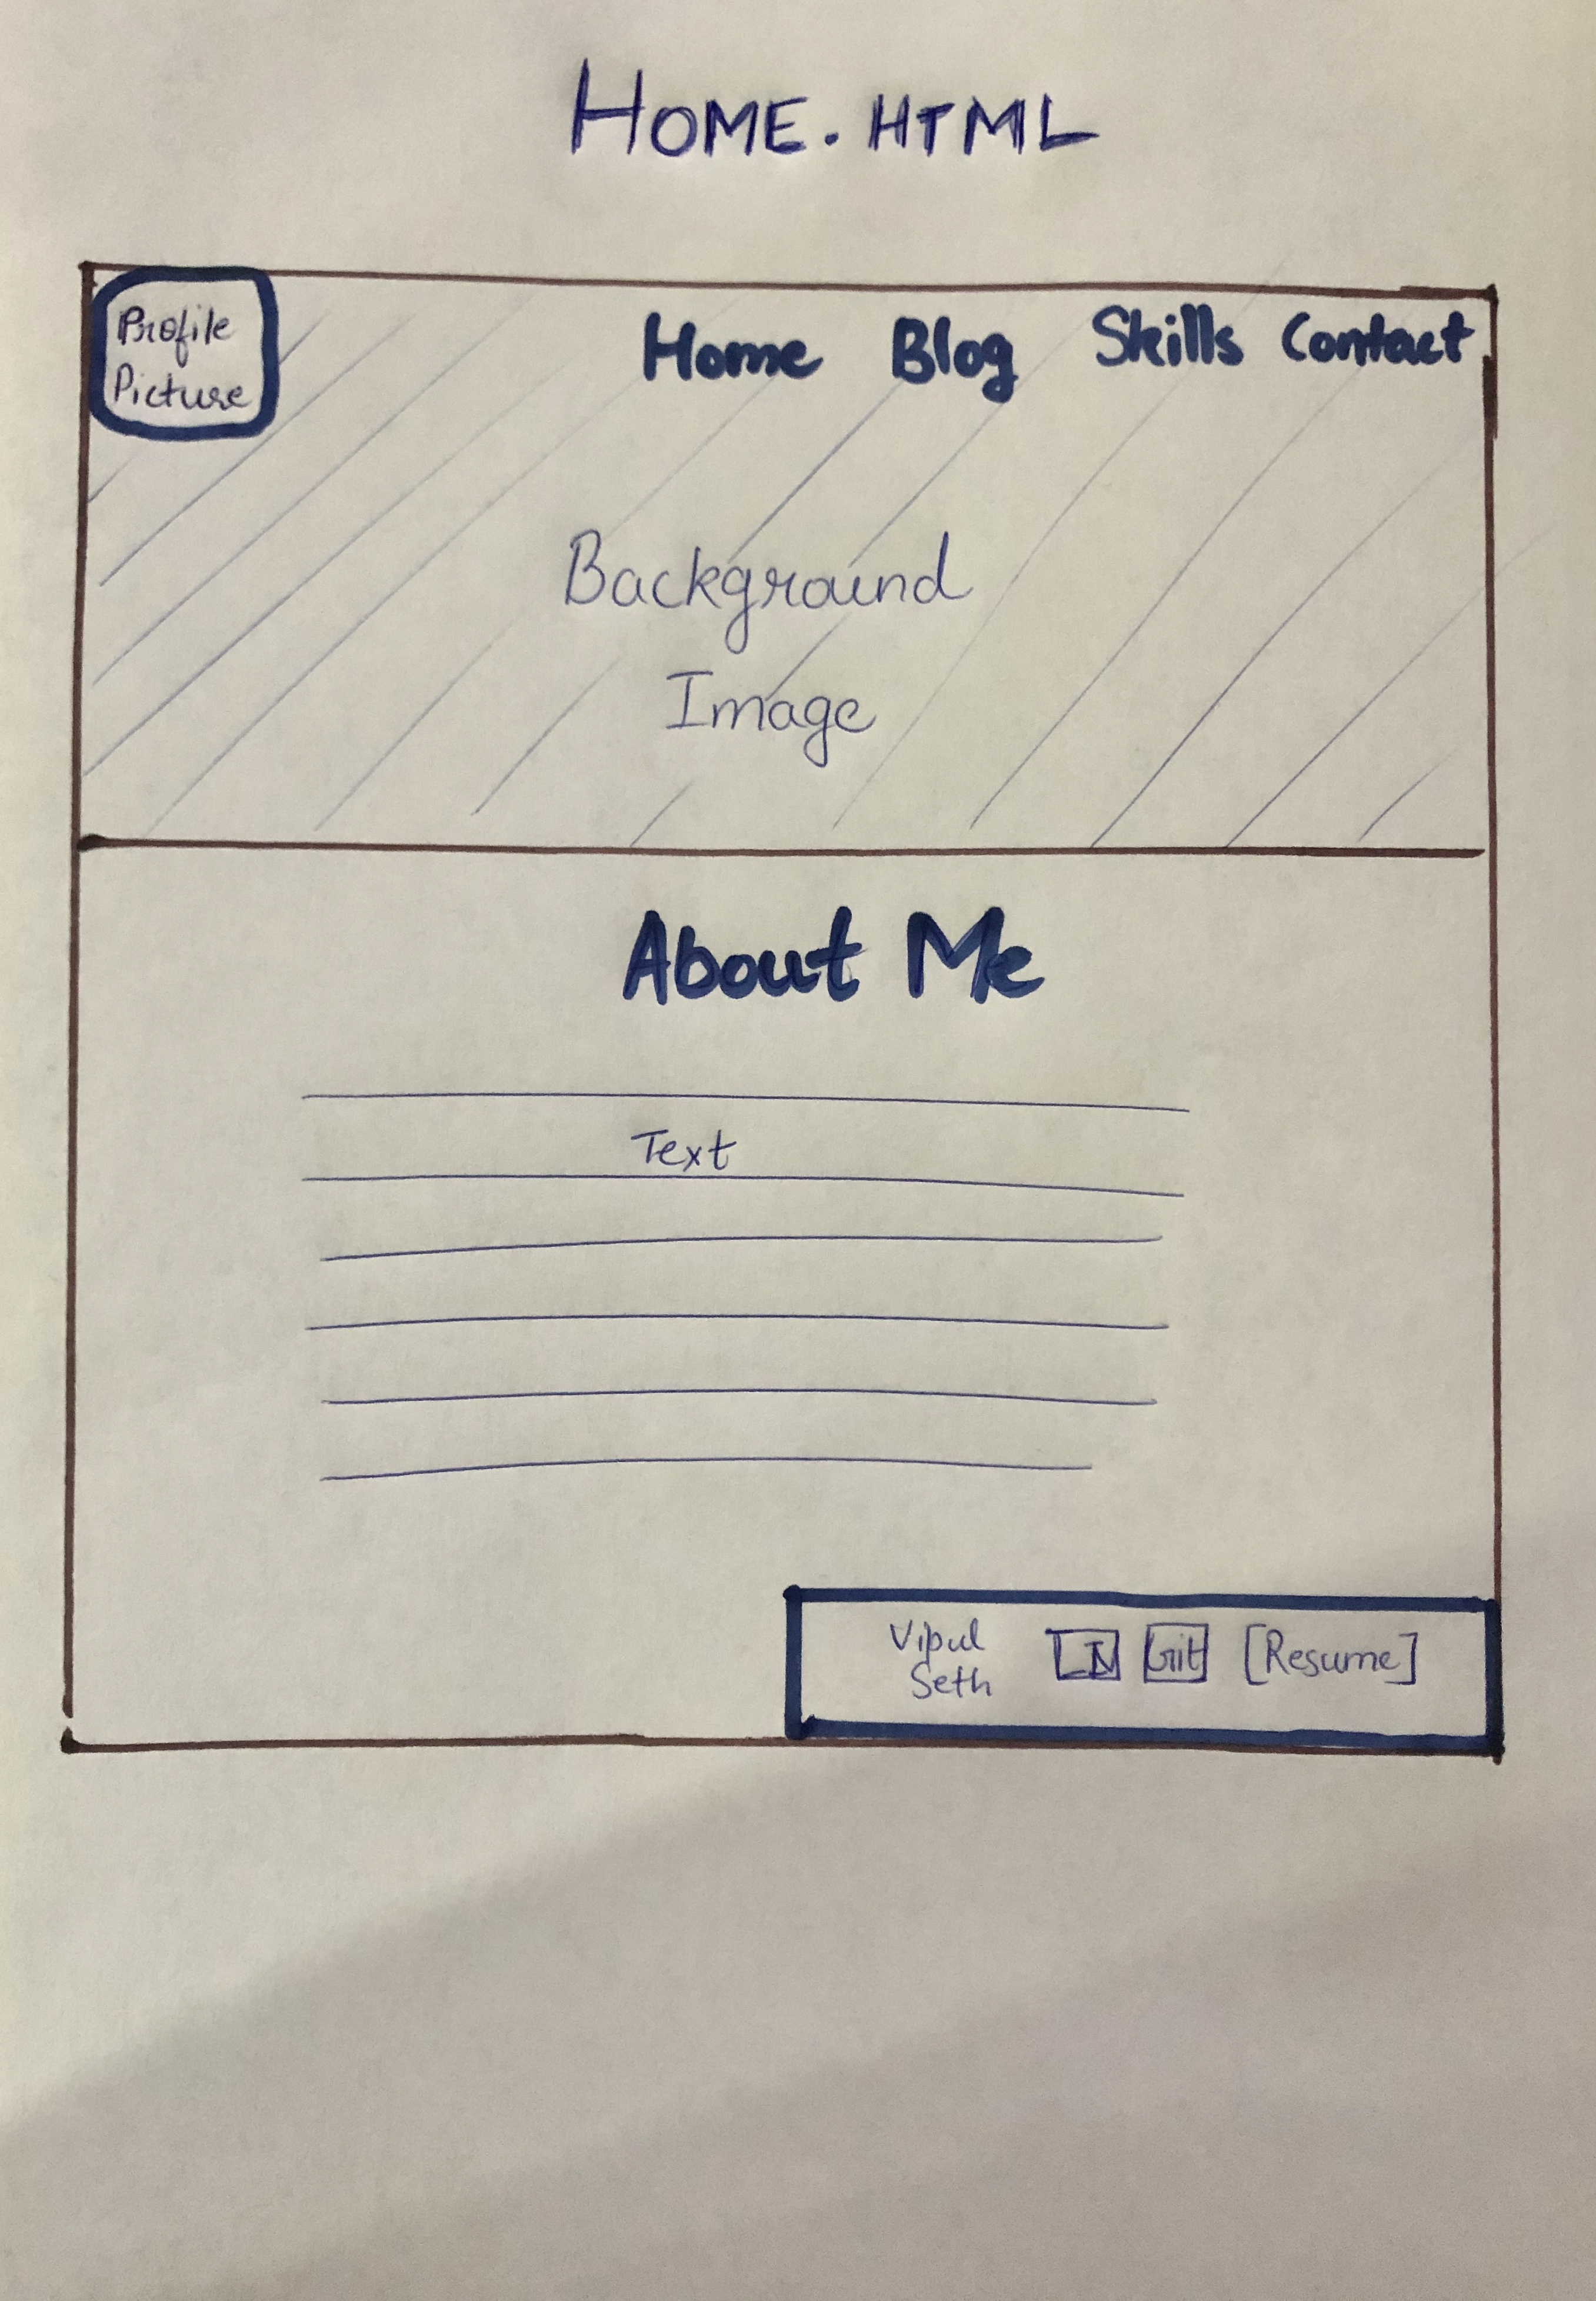 HOME.HTML
Profile
Picture
Home Blog Skills Contact
Background
Image
About Me
Text
Vipul
Seth
LN Git [Resume]